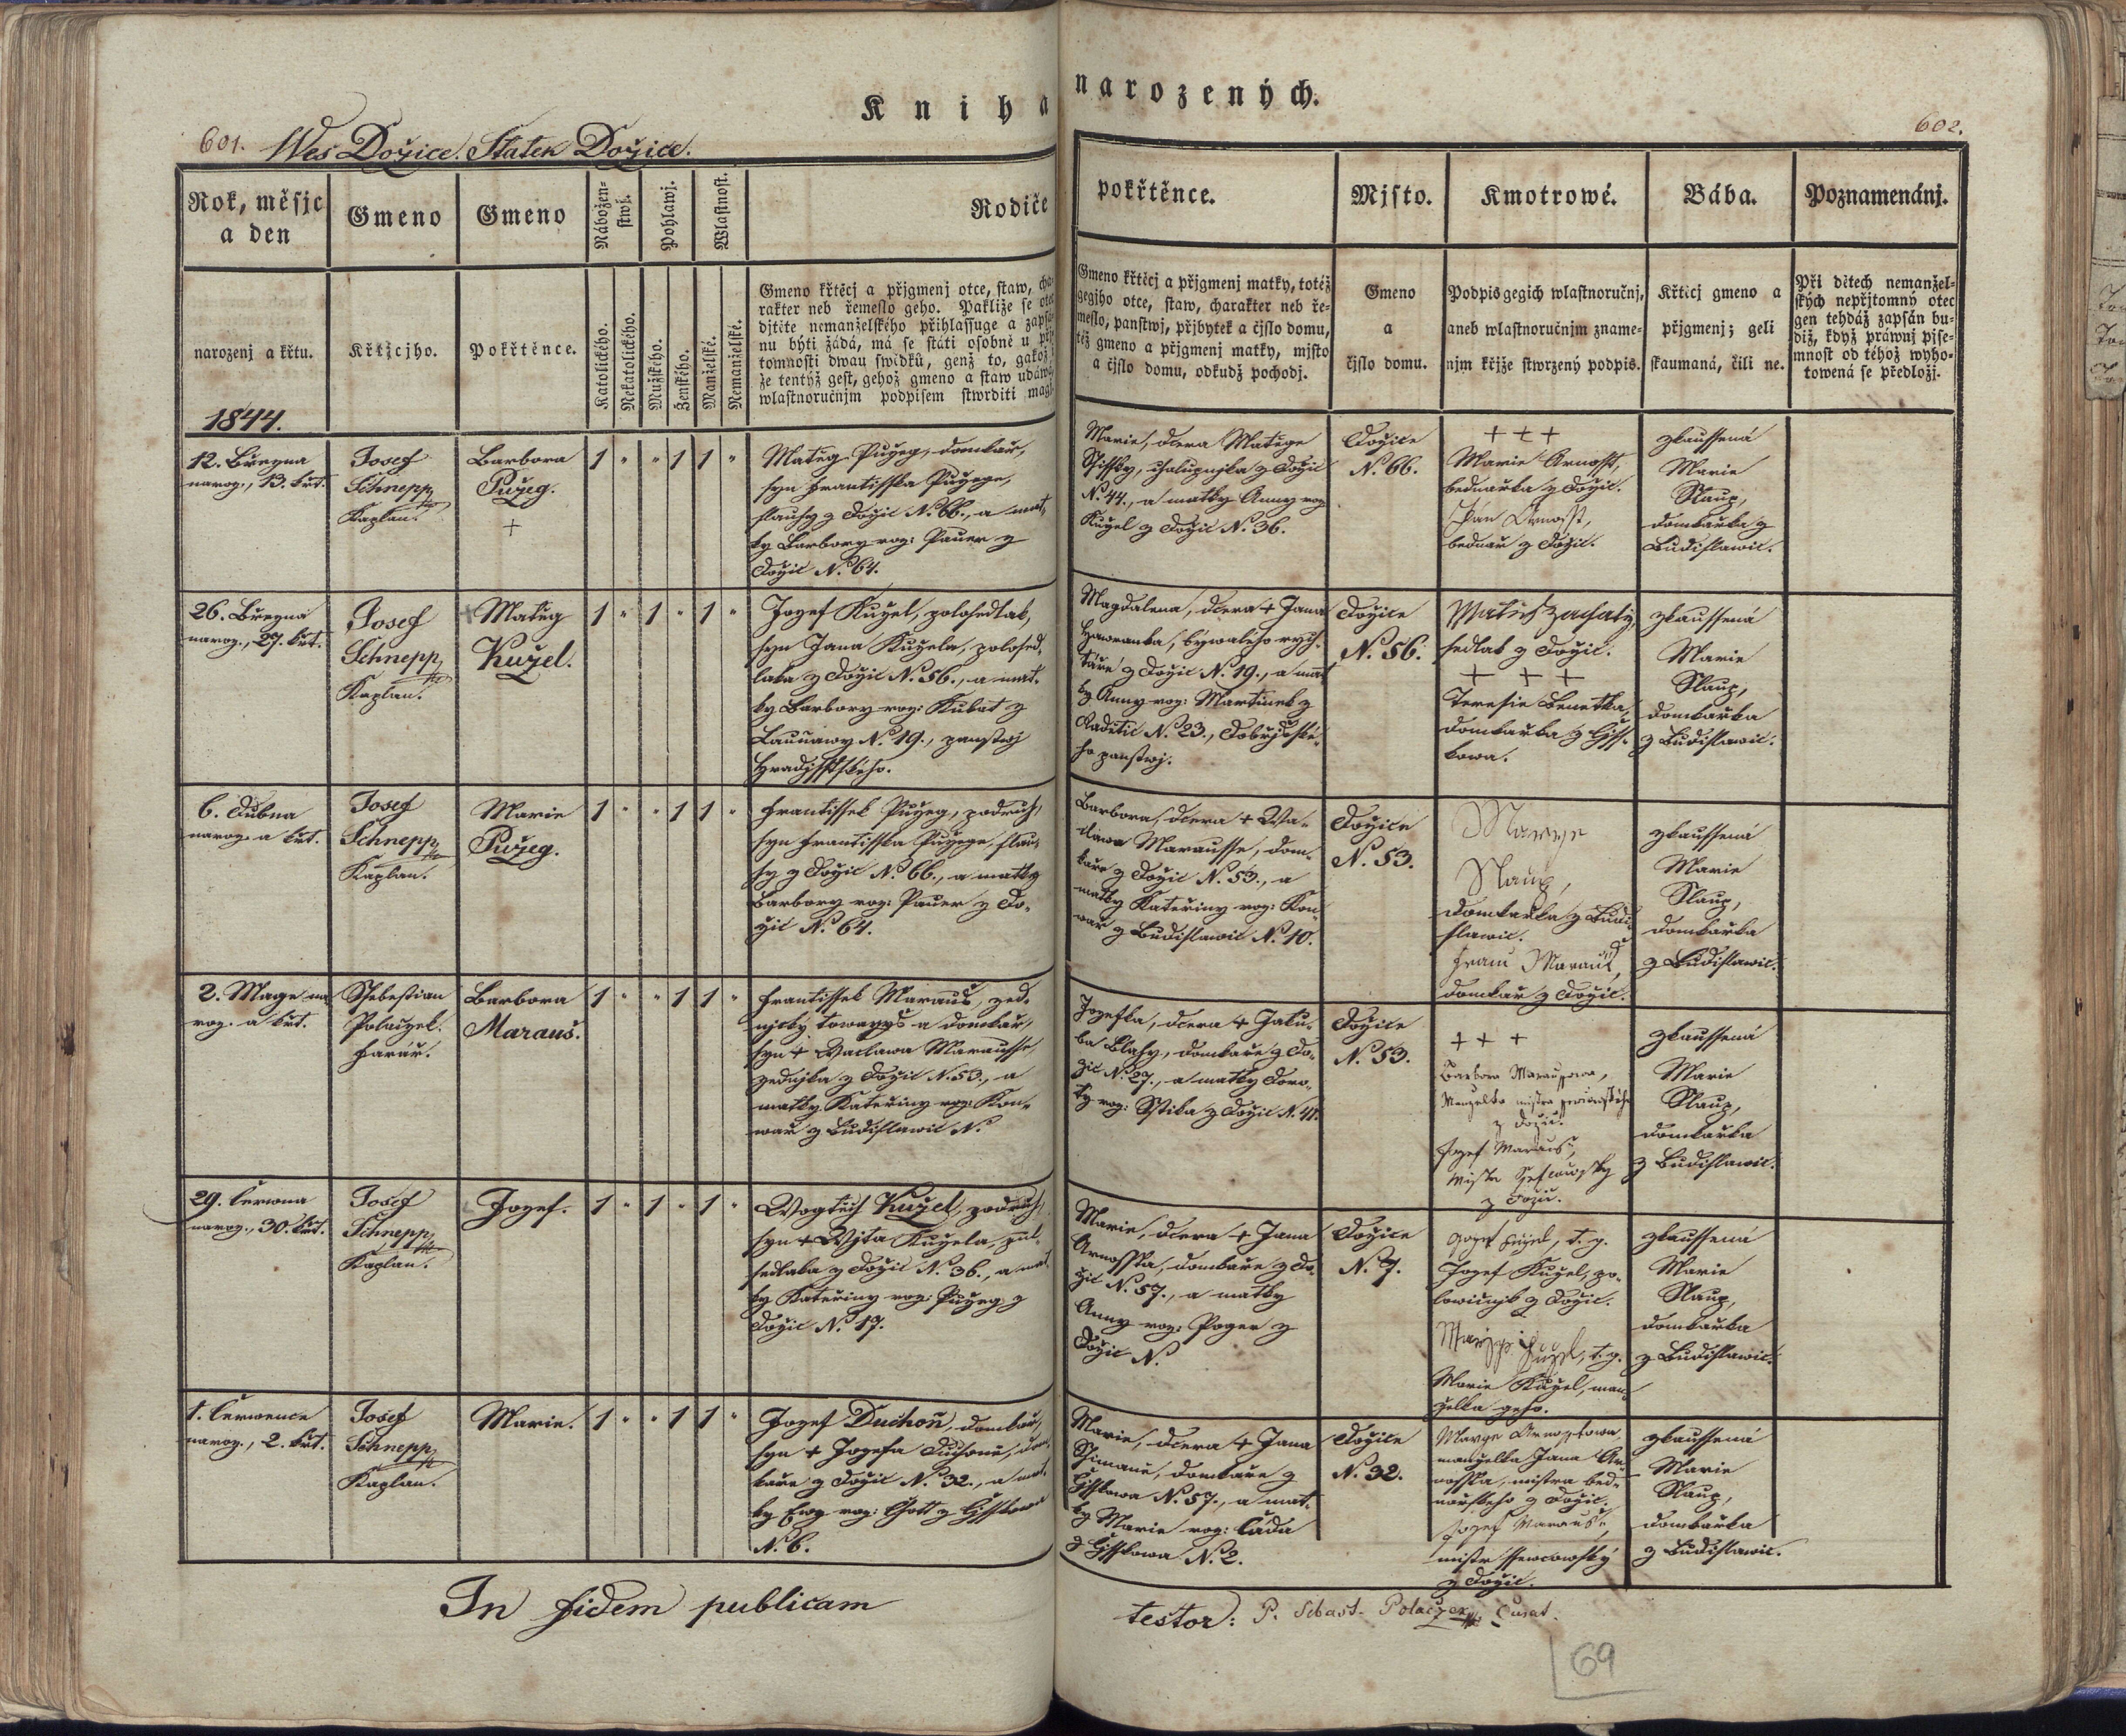 Kniha narozených.
601. Wes Dožice. Statek Dožice.
602.
Rok, měsjc
a den
Gmeno
Gmeno
Nábožen-
stwj.
Pohlawj.
Wlastnost.
Rodiče
pokřtěnce.
Mjsto.
Kmotrowé.
Bába.
Poznamenánj.
narozenj a křtu.
Křtjcjho.
Pokřtěnce.
Katolického.
Nekatolického.
Mužského.
Ženského.
Manželské.
Nemanželské.
Gmeno křtěcj a přjgmenj otce, staw, cha-
rakter neb řemeslo geho. Pakliže se otec
djtěte nemanželského přihlassuge a zapsá-
nu býti žádá, má se státi osobně u pří-
tomnosti dwau swědků, genž to, gakož i
že tentýž gest, gehož gmeno a staw udáwá,
wlastnoručnjm podpisem stwrditi magj.
Gmeno křtěcj a přjgmenj matky, totéž
gegjho otce, staw, charakter neb ře-
meslo, panstwj, přjbytek a čjslo domu,
též gmeno a přjgmenj matky, mjsto
a čjslo domu, odkudž pocházj.
Gmeno
a
čjslo domu.
Podpis gegich wlastnoručnj,
aneb wlastnoručnjm zname-
njm křjže stwrzený podpis.
Křticj gmeno a
přjgmenj; geli
skaumaná, čili ne.
Při dětech nemanžel-
ských nepřjtomný otec
gen tehdáž zapsán bu-
diž, když práwnj pjse-
mnost od téhož wyho-
towená se předložj.
1844.
12. Března
naroz., 13. křt.
Josef
Schnepp
Kaplan.
Barbora
Pužeg.
+
1 " " 1 1 "
Matěg Pužeg, domkář,
syn Frantisska Pužege,
slauhy z Dožic N. 66., a mat-
ky Barbory roz: Pauer z
Dožic N. 64.
Marie, dcera Matěge
Šissky, chalupnjka z Dožic
N. 44., a matky Anny roz
Kužel z Dožic N. 36.
Dožice
N. 66.
+ + +
Marie Arnosst,
bednářka z Dožic.
Jan Arnosst,
bednář z Dožic.
zkaussená
Marie
Slaup,
domkářka z
Budislawic.
26. Března
naroz., 27. křt.
Josef
Schnepp
Kaplan.
Matěg
Kužel.
1 " 1 " 1 "
Jozef Kužel, polosedlák,
syn Jana Kužela, polosed-
láka z Dožic N. 56., a mat-
ky Barbory roz: Kubat z
N. 19., panstwj
Hradjsstského.
Magdalena, dcera + Jana
Haworanka, bywalého rych-
táře z Dožic N. 19., a mat-
ky Anny roz: Martinek z
Radětic N. 23.,
ho panstwj.
Dožice
N. 56.
Matieg
sedlák z Dožic.
+ + +
Teresie Benetka,
domkářka z Gjss-
kowa.
zkaussená
Marie
Slaup,
domkářka
z Budislawic.
6. Dubna
naroz. a křt.
Josef
Schnepp
Kaplan.
Marie
Pužeg.
1 " " 1 1 "
Frantissek Pužeg, podruh,
syn Frantisska Pužege, slau-
hy z Dožic N. 66., a matky
Barbory roz: Pauer z Do-
žic N. 64.
Barbora, dcera + Wá-
clawa Marausse, dom-
káře z Dožic N. 53., a
matky Kateřiny roz: Kon-
wář z Budislawic N. 10.
Dožice
N. 53.
Marye
Slaup,
domkářka z Budi-
slawic.
Franc Marauš,
domkář z Dožic.
zkaussená
Marie
Slaup,
domkářka
z Budislawic.
2. Mage na-
roz. a křt.
Ssebestian
Polaczek.
Farář.
Barbora
Marauš.
1 " " 1 1 "
Frantissek Marauš, zed-
nický towaryš a domkář,
syn + Wáclawa Marausse,
zednjka z Dožic N. 53., a
matky Kateřiny roz: Kon-
wář z Budislawic N.
Jozefka, dcera + Jaku-
ba Blahy, domkáře z Do-
žic N. 27., a matky Doro-
ty roz: Stika z Dožic N. 41.
Dožice
N. 53.
+ + +
Barbora Marausowa,
Manzelka mistra
z Dožic.
Jozef Marauš,
Mistr
z Dožic.
zkaussená
Marie
Slaup,
domkářka
z Budislawic.
29. Června
naroz., 30. křt.
Josef
Schnepp
Kaplan.
Jozef.
1 " 1 " 1 "
Wogtěch Kužel, podruh,
syn + Wjta Kužela, půl-
sedláka z Dožic N. 36., a mat-
ky Kateřiny roz: Pužeg z
Dožic N. 17.
Marie, dcera + Jana
Arnossta, domkáře z Do-
žic N. 57., a matky
Anny roz: Poger z
Dožic N.
Dožice
N. 7.
Jozef Kužel, t. g.
Jozef Kužel, po-
z Dožic.
Maryge Kužel, t. g.
Marie Kužel, man-
želka geho.
zkaussená
Marie
Slaup,
domkářka
z Budislawic.
1. Července
naroz., 2. křt.
Josef
Schnepp
Kaplan.
Marie.
1 " " 1 1 "
Jozef Duchoň, domkář,
syn + Jozefa Duchoně, dom-
káře z Dožic N. 32., a mat-
ky Ewy roz: Chott z Gjsskowa
N. 6.
Marie, dcera + Jana
Ssimáně, domkáře z
Gjsskowa N. 57., a mat-
ky Marie roz: Čáda
z Gjsskowa N. 2.
Dožice
N. 32.
Marye Arnosstowa,
manželka Jana Ar-
nossta, mistra bed-
nářského z Dožic.
Jozef Marauš,
mistr ssewcowský
z Dožic.
zkaussená
Marie
Slaup,
domkářka
z Budislawic.
In fidem publicam testor: P. Sebast. Polaczek, Curat.
69